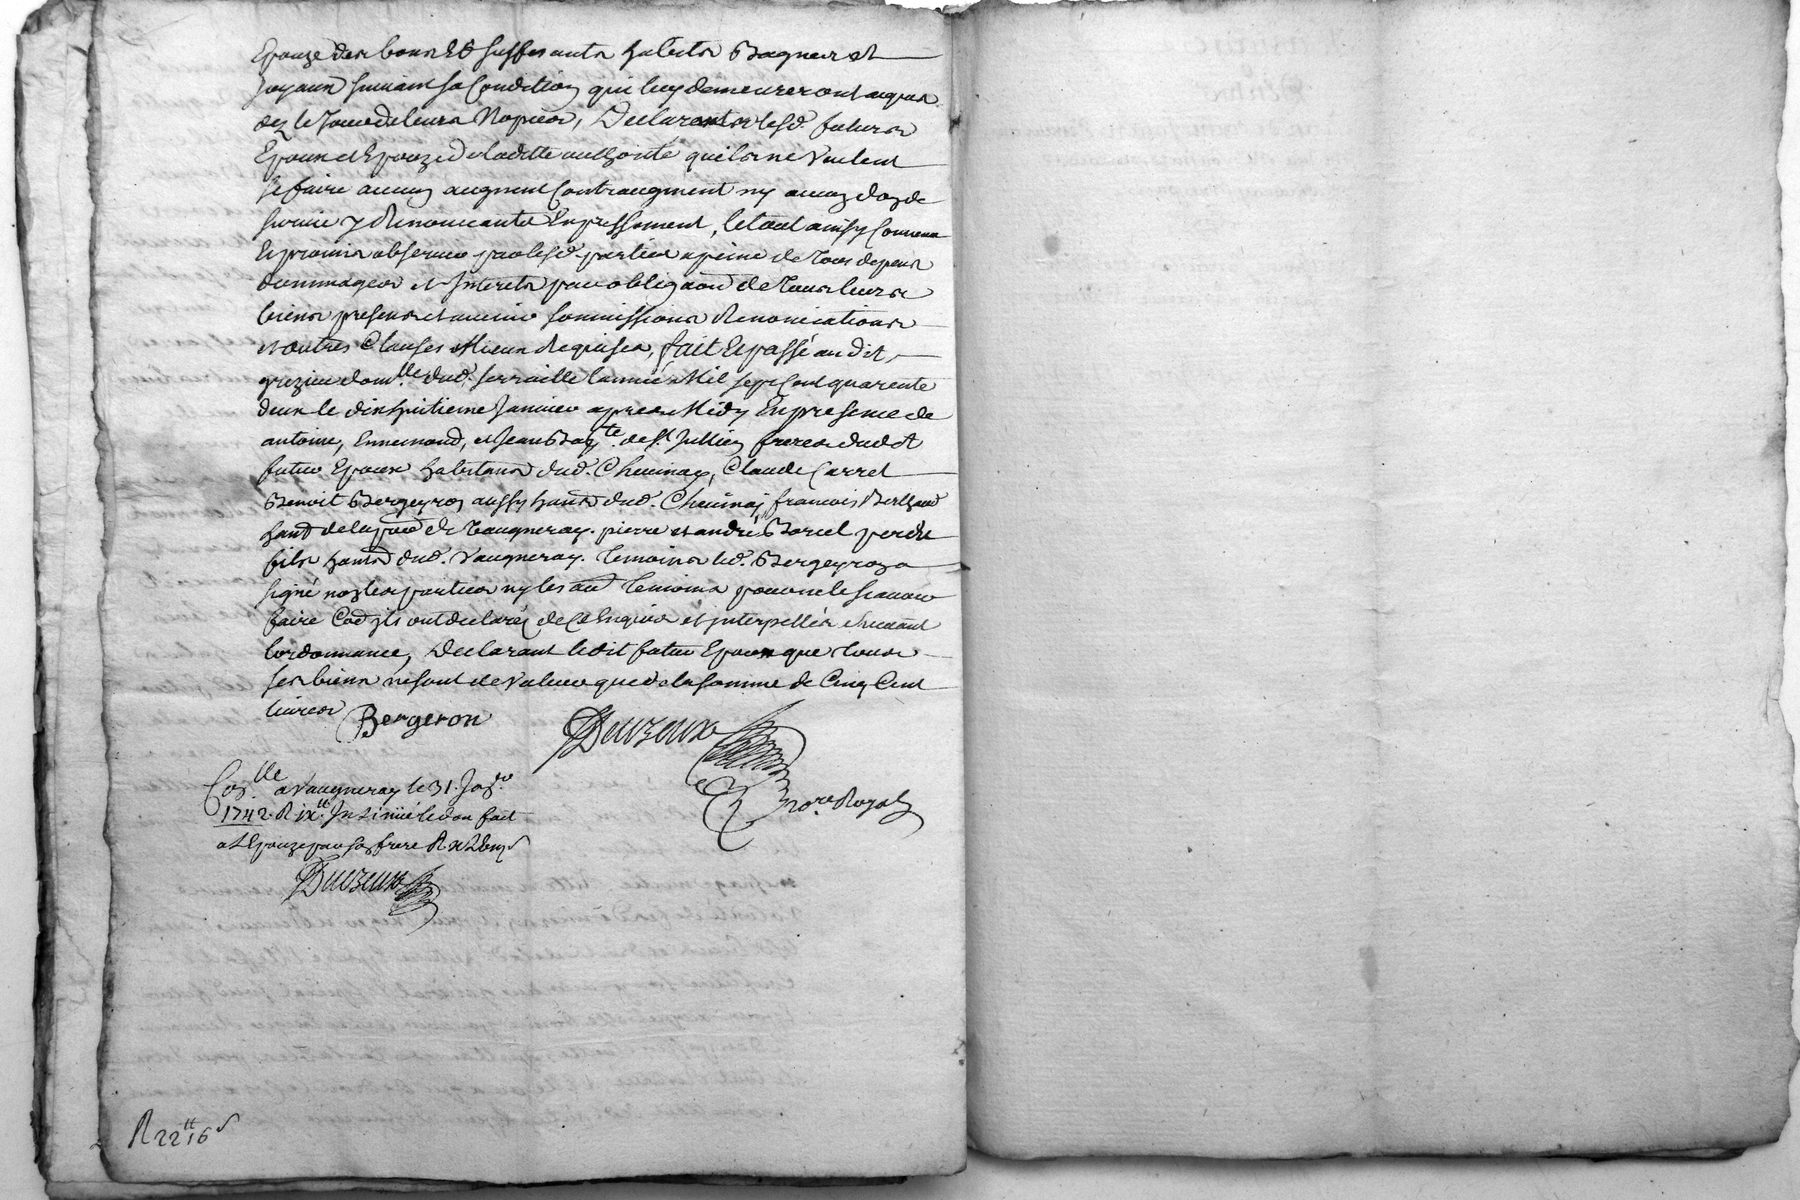 Epouze des bons Et suffisants habits Bagues et
joyaux suivant sa Condition qui luy demeureront acquis
dez le Jour de leurs Nopces, Declarants lesd. futurs
Epoux et Epouze de laditte authorité quils ne veulent
se faire aucun augment Contraugment ny aucun don de
survie y Renonceants Expressement, le tout ainsy Convenu
Et promis observer par lesd. parties a peine de Tous depens
dommages et Interets par obligaõn de Tous leurs
biens presents et avenir sommissions Renonciations
et autres Clauses Mieux Requises, fait Et passé audit
grezieu domlle dud. serraille lannée Mil sept Cent quarente
deux le dixhuitieme Janvier apres Midy En presence de
antoine, Ennemond, et Jean Bapte. de st. Jullien freres dudit
futur Epoux habitans dud. Chevinay, Claude Carret
Benoit Bergeyron aussy hants dud. Chevinay francois Berthaud
hant de la psse de Vaugneray. pierre et andré Borel pere et
fils hants dud. Vaugneray. Temoins led. Bergeyron a
signé non les parties ny les aut. Temoins pour ne le scavoir
faire Cōe ils ont declaré de Ce Enquis et interpellés suivant
lordonnance, Declarant ledit futur Epoux que tous
ses biens ne sont de valeur que de la somme de Cinq Cent
livres
Bergeron
Deuzeux
nore. Royal
Conlle. a Vaugneray le 31. Janer.
1742. R ix tt Insinué le don fait
a lEpouze par son frere R
Deuzeux
R 22 tt 16 s